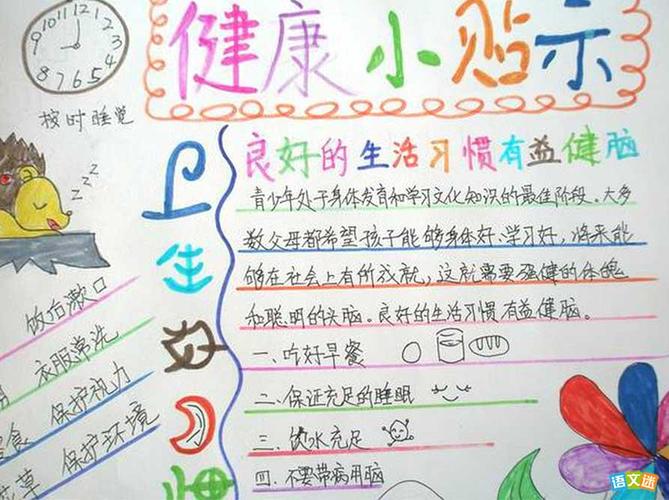 健康小贴示
12 1 2 3 4 5 6 7 8 9 10 11
按时睡觉
zzz
卫生好
饭后漱口
衣服常洗
食 保护视力
草 保护环境
良好的生活习惯有益健脑
青少年处于身体发育和学习文化知识的最佳阶段。大多
数父母都希望孩子能够身体好、学习好，将来能
够在社会上有所成就，这就需要强健的体魄
和聪明的头脑。良好的生活习惯有益健脑。
一、吃好早餐
二、保证充足的睡眠
三、饮水充足
四、不要带病用脑
语文迷